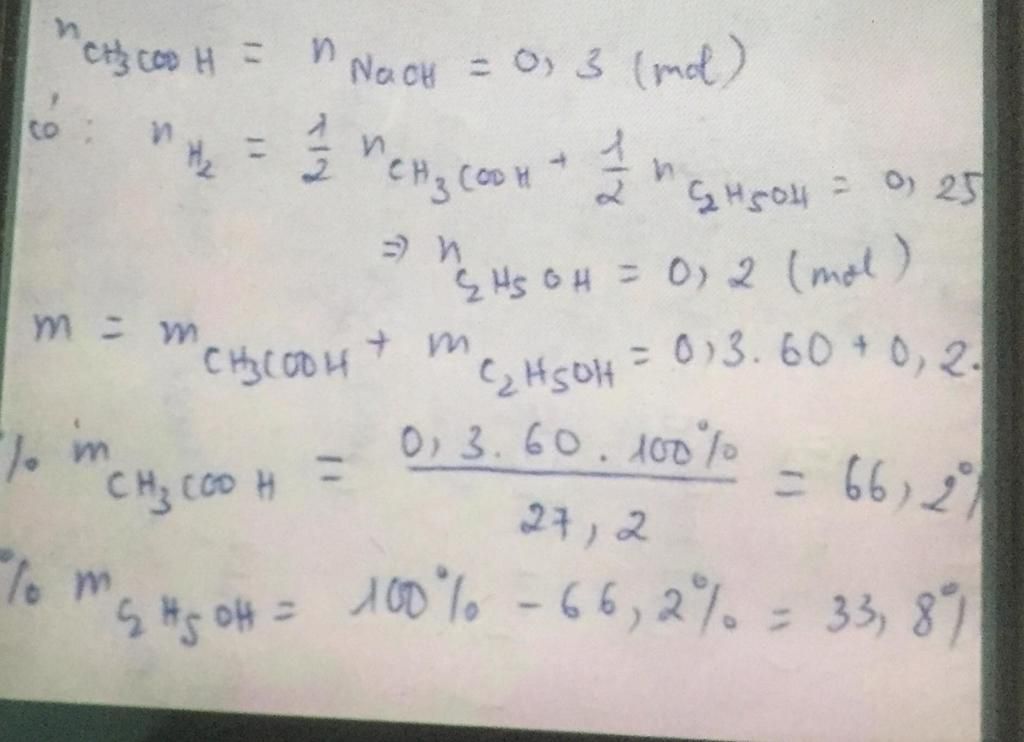 nCH3COOH = nNaOH = 0,3 (mol)
có: nH2 = 1/2 nCH3COOH + 1/2 nC2H5OH = 0,25
=> nC2H5OH = 0,2 (mol)
m = mCH3COOH + mC2H5OH = 0,3.60 + 0,2.
% mCH3COOH = 0,3.60.100% / 27,2 = 66,2%
% mC2H5OH = 100% - 66,2% = 33,8%